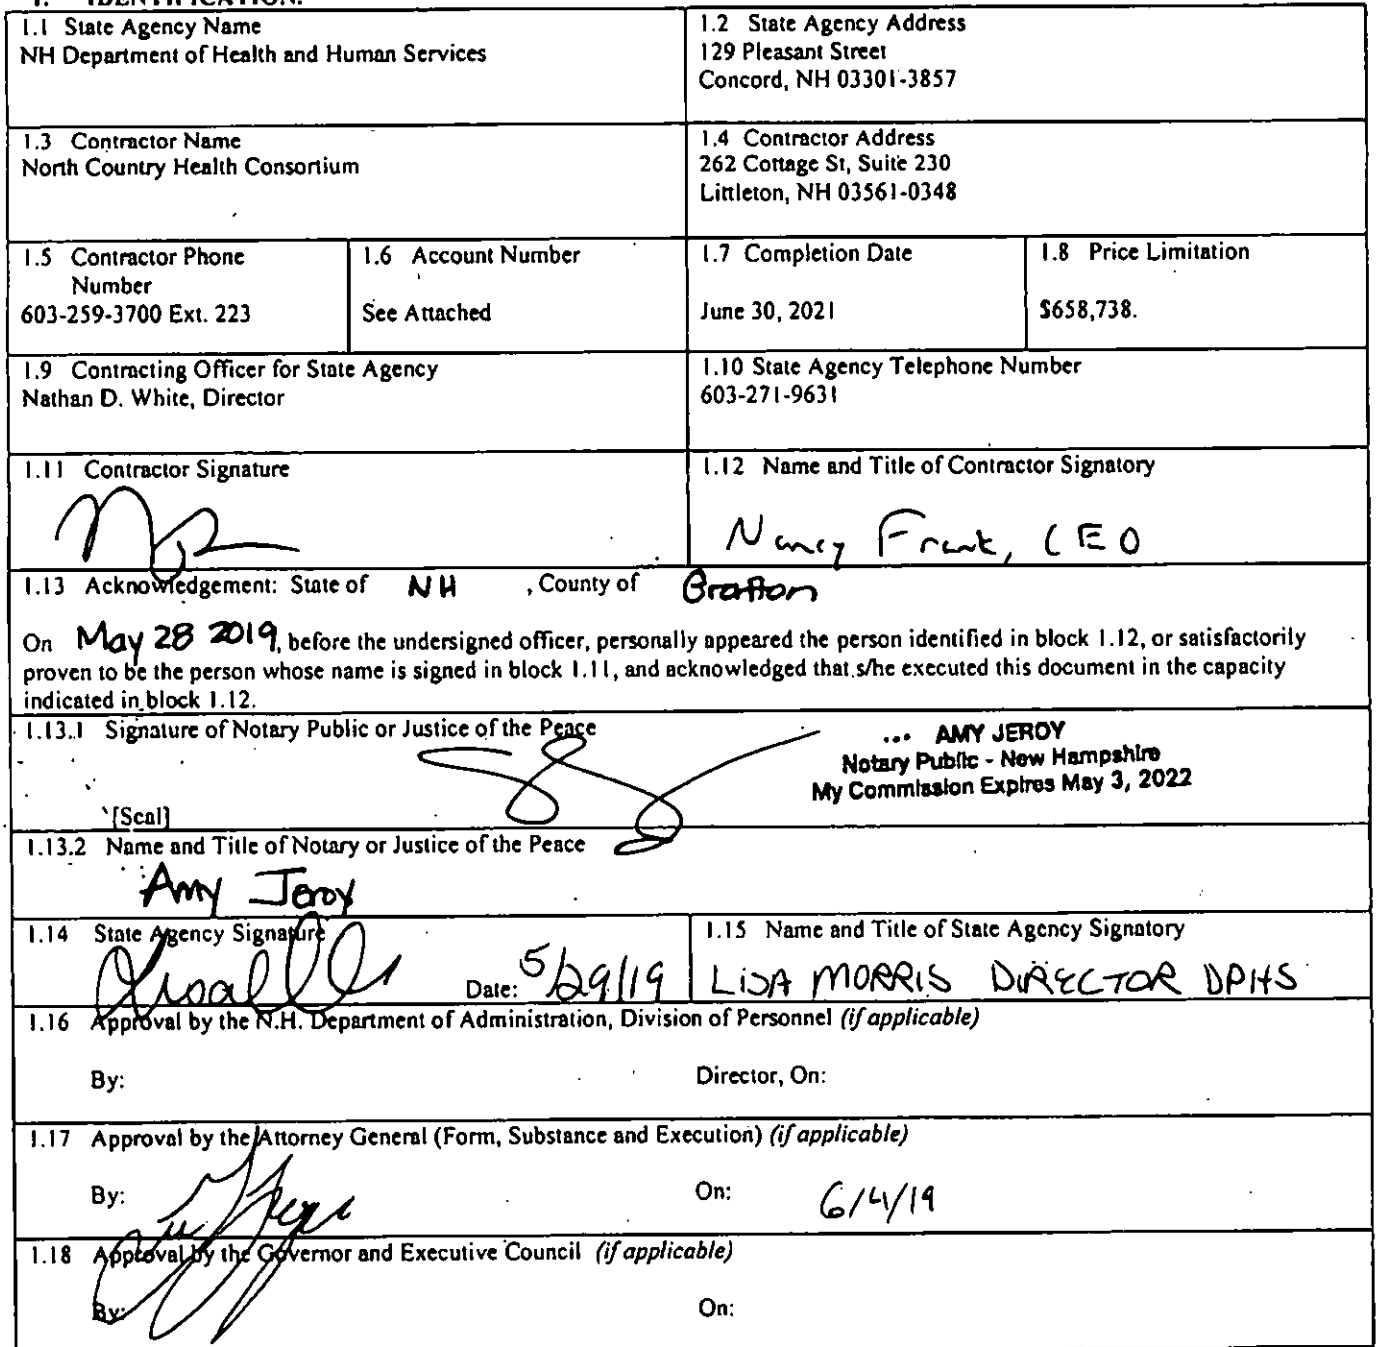 1. IDENTIFICATION.
1.1 State Agency Name
NH Department of Health and Human Services
1.2 State Agency Address
129 Pleasant Street
Concord, NH 03301-3857
1.3 Contractor Name
North Country Health Consortium
1.4 Contractor Address
262 Cottage St, Suite 230
Littleton, NH 03561-0348
1.5 Contractor Phone
Number
603-259-3700 Ext. 223
1.6 Account Number
See Attached
1.7 Completion Date
June 30, 2021
1.8 Price Limitation
$658,738.
1.9 Contracting Officer for State Agency
Nathan D. White, Director
1.10 State Agency Telephone Number
603-271-9631
1.11 Contractor Signature
1.12 Name and Title of Contractor Signatory
Nancy Frank, CEO
1.13 Acknowledgement: State of NH , County of Grafton
On May 28 2019, before the undersigned officer, personally appeared the person identified in block 1.12, or satisfactorily
proven to be the person whose name is signed in block 1.11, and acknowledged that s/he executed this document in the capacity
indicated in block 1.12.
1.13.1 Signature of Notary Public or Justice of the Peace
[Seal]
AMY JEROY
Notary Public - New Hampshire
My Commission Expires May 3, 2022
1.13.2 Name and Title of Notary or Justice of the Peace
Amy Jeroy
1.14 State Agency Signature
Date: 5/29/19
1.15 Name and Title of State Agency Signatory
LISA MORRIS DIRECTOR DPHS
1.16 Approval by the N.H. Department of Administration, Division of Personnel (if applicable)
By: Director, On:
1.17 Approval by the Attorney General (Form, Substance and Execution) (if applicable)
By: On: 6/4/19
1.18 Approval by the Governor and Executive Council (if applicable)
By: On: